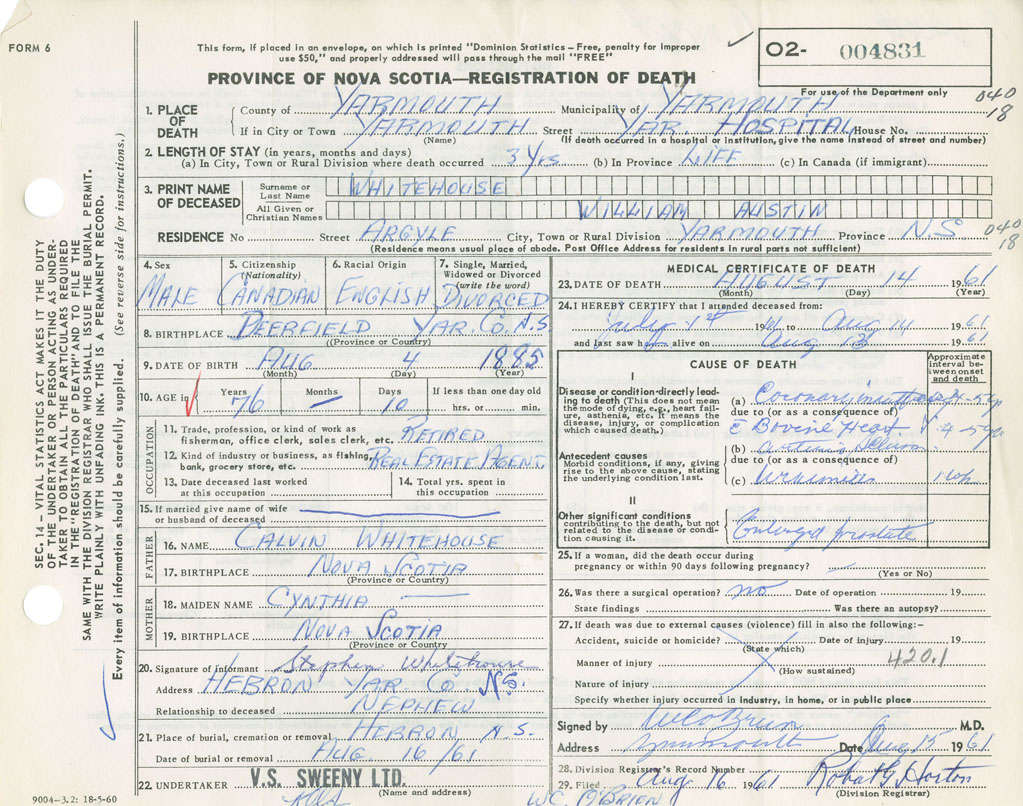 FORM 6
This form, if placed in an envelope, on which is printed "Dominion Statistics – Free, penalty for improper
use $50," and properly addressed will pass through the mail "FREE"
O2- 004831
For use of the Department only
PROVINCE OF NOVA SCOTIA—REGISTRATION OF DEATH
040
18
1. PLACE OF DEATH
County of YARMOUTH Municipality of YARMOUTH
If in City or Town YARMOUTH Street YAR. HOSPITAL House No.
(Name) (If death occurred in a hospital or institution, give the name instead of street and number)
2. LENGTH OF STAY (in years, months and days)
(a) In City, Town or Rural Division where death occurred 3 Yrs (b) In Province LIFE (c) In Canada (if immigrant)
3. PRINT NAME OF DECEASED
Surname or Last Name WHITEHOUSE
All Given or Christian Names WILLIAM AUSTIN
RESIDENCE No Street ARGYLE City, Town or Rural Division YARMOUTH Province N.S
040
18
(Residence means usual place of abode. Post Office Address for residents in rural parts not sufficient)
4. Sex MALE
5. Citizenship (Nationality) CANADIAN
6. Racial Origin ENGLISH
7. Single, Married, Widowed or Divorced (write the word) DIVORCED
8. BIRTHPLACE DEERFIELD YAR. CO. N.S
(Province or Country)
9. DATE OF BIRTH AUG 4 1885
(Month) (Day) (Year)
10. AGE in Years 76 Months – Days 10 If less than one day old
hrs. or min.
OCCUPATION
11. Trade, profession, or kind of work as
fisherman, office clerk, sales clerk, etc. RETIRED
12. Kind of industry or business, as fishing,
bank, grocery store, etc. REAL ESTATE AGENT
13. Date deceased last worked
at this occupation
14. Total yrs. spent in
this occupation
15. If married give name of wife
or husband of deceased
FATHER
16. NAME CALVIN WHITEHOUSE
17. BIRTHPLACE NOVA SCOTIA
(Province or Country)
MOTHER
18. MAIDEN NAME CYNTHIA —
19. BIRTHPLACE NOVA SCOTIA
(Province or Country)
20. Signature of informant Stephen Whitehouse
Address HEBRON YAR CO. N.S.
Relationship to deceased NEPHEW
21. Place of burial, cremation or removal HEBRON N.S.
Date of burial or removal AUG 16/61
22. UNDERTAKER V.S. SWEENY LTD.
(Name and address)
MEDICAL CERTIFICATE OF DEATH
23. DATE OF DEATH AUGUST 14 1961
(Month) (Day) (Year)
24. I HEREBY CERTIFY that I attended deceased from:
July 1st 19 to Aug 14 1961
and last saw h alive on Aug 13 1961
CAUSE OF DEATH
Approximate interval between onset and death
I
Disease or condition directly leading to death (This does not mean the mode of dying, e.g., heart failure, asthenia, etc. It means the disease, injury, or complication which caused death.)
(a) Coronary
due to (or as a consequence of)
Antecedent causes
Morbid conditions, if any, giving rise to the above cause, stating the underlying condition last.
(b)
due to (or as a consequence of)
(c)
II
Other significant conditions
contributing to the death, but not related to the disease or condition causing it.
Enlarged prostate
25. If a woman, did the death occur during
pregnancy or within 90 days following pregnancy?
(Yes or No)
26. Was there a surgical operation? no Date of operation 19
State findings Was there an autopsy?
27. If death was due to external causes (violence) fill in also the following:–
Accident, suicide or homicide? Date of injury 19
(State which)
420.1
Manner of injury
(How sustained)
Nature of injury
Specify whether injury occurred in industry, in home, or in public place
Signed by W C O'Brien M.D.
Address Yarmouth Date Aug 15 1961
28. Division Registrar's Record Number
29. Filed Aug 16 1961 Robert G Horton
(Division Registrar)
WC. O'BRIEN
SEC. 14 – VITAL STATISTICS ACT MAKES IT THE DUTY
OF THE UNDERTAKER OR PERSON ACTING AS UNDER-
TAKER TO OBTAIN ALL THE PARTICULARS REQUIRED
IN THE "REGISTRATION OF DEATH" AND TO FILE THE
SAME WITH THE DIVISION REGISTRAR WHO SHALL ISSUE THE BURIAL PERMIT.
WRITE PLAINLY WITH UNFADING INK. THIS IS A PERMANENT RECORD.
Every item of information should be carefully supplied. (See reverse side for instructions.)
9004–3.2: 18-5-60